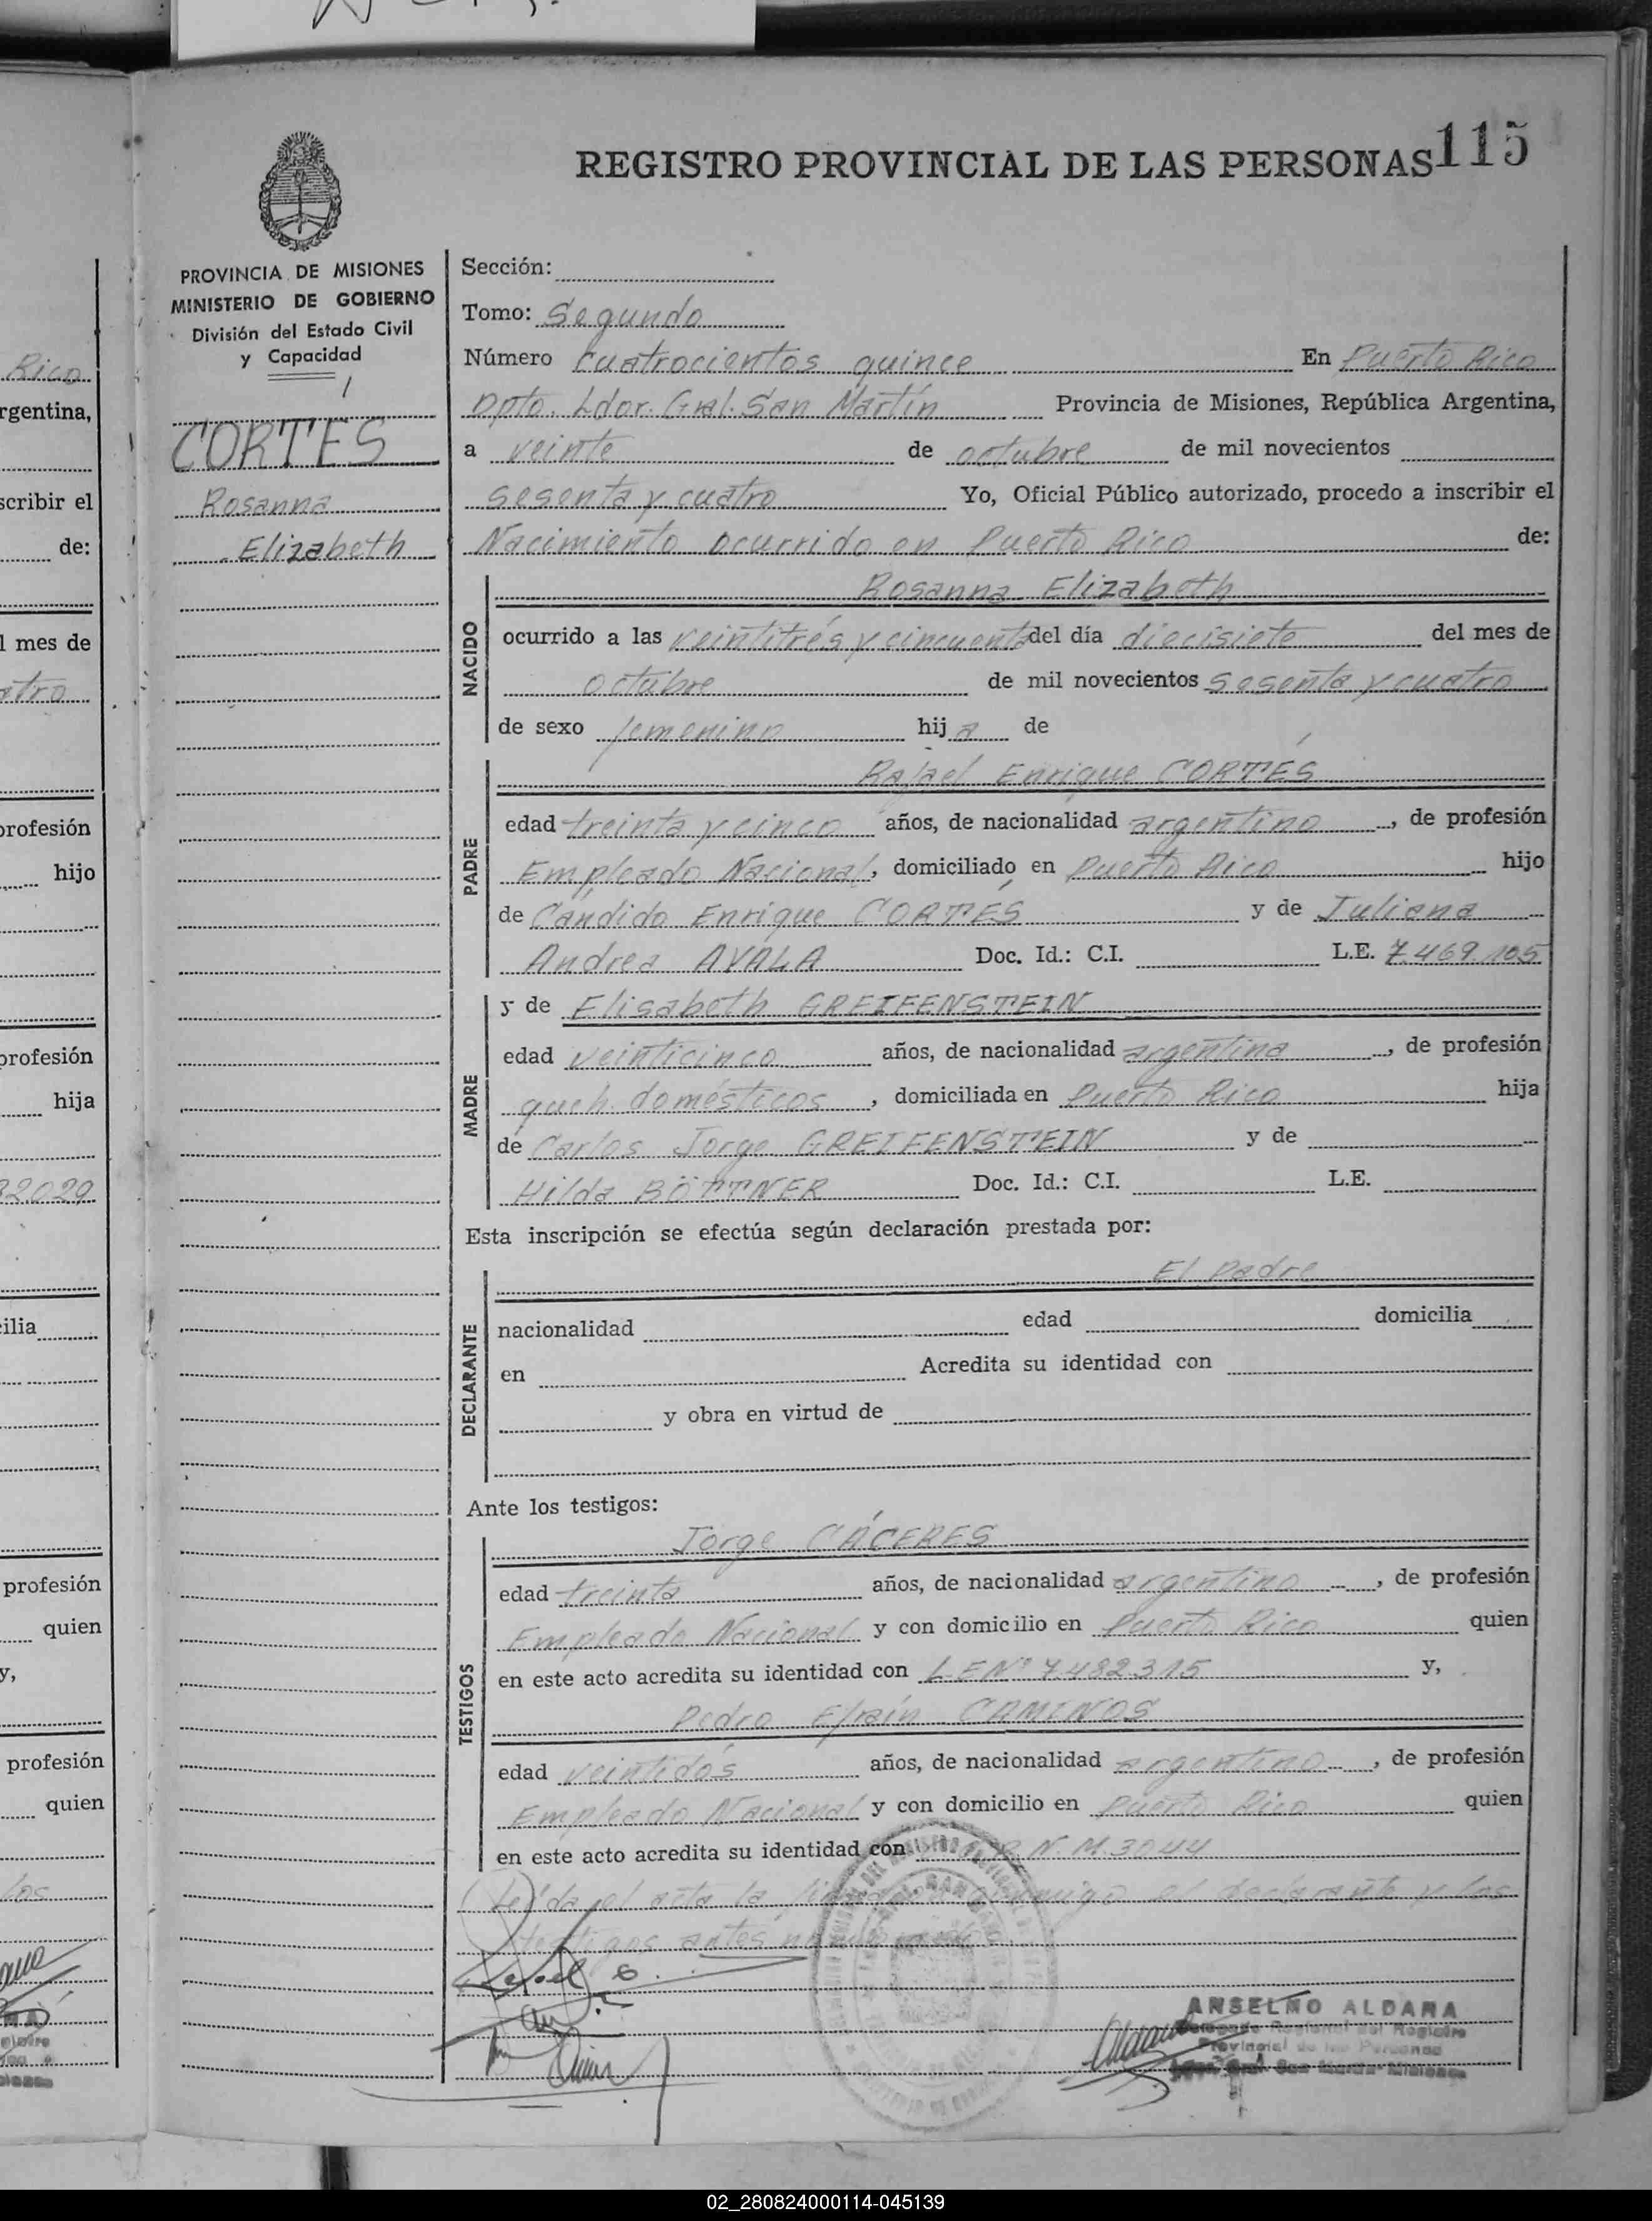 115
REGISTRO PROVINCIAL DE LAS PERSONAS
PROVINCIA DE MISIONES
MINISTERIO DE GOBIERNO
División del Estado Civil
y Capacidad
CORTÉS
Rosanna
Elizabeth
Sección:
Tomo: Segundo
Número cuatrocientos quince En Puerto Rico
Dpto. Ldor. Gral. San Martín Provincia de Misiones, República Argentina,
a veinte de octubre de mil novecientos
sesenta y cuatro Yo, Oficial Público autorizado, procedo a inscribir el
Nacimiento ocurrido en Puerto Rico de:
NACIDO
Rosanna Elizabeth
ocurrido a las veintitrés y cincuenta del día diecisiete del mes de
octubre de mil novecientos sesenta y cuatro
de sexo femenino hija de
PADRE
Rafael Enrique CORTÉS
edad treinta y cinco años, de nacionalidad argentino, de profesión
Empleado Nacional, domiciliado en Puerto Rico hijo
de Cándido Enrique CORTÉS y de Juliana
Andrea AYALA Doc. Id.: C.I. L.E. 7.469.105
MADRE
y de Elisabeth GREIFENSTEIN
edad veinticinco años, de nacionalidad argentina, de profesión
queh. domésticos, domiciliada en Puerto Rico hija
de Carlos Jorge GREIFENSTEIN y de
Hilda BÖTTNER Doc. Id.: C.I. L.E.
Esta inscripción se efectúa según declaración prestada por:
DECLARANTE
El padre
nacionalidad edad domicilia
en Acredita su identidad con
y obra en virtud de
Ante los testigos:
TESTIGOS
Jorge CÁCERES
edad treinta años, de nacionalidad argentino, de profesión
Empleado Nacional y con domicilio en Puerto Rico quien
en este acto acredita su identidad con L.E Nº 7.482.315 y,
Pedro Efraín CAMINOS
edad veintidós años, de nacionalidad argentino, de profesión
Empleado Nacional y con domicilio en Puerto Rico quien
en este acto acredita su identidad con N.M. 3044
Leída el acta la conmigo el declarante y los
testigos antes
ANSELMO ALDANA
Delegado Regional del Registro
Provincial de las Personas
Gral. San Martín-Misiones
Rico
rgentina,
scribir el
de:
l mes de
profesión
hijo
profesión
hija
32029
ilia
profesión
quien
y,
profesión
quien
los
02_280824000114-045139